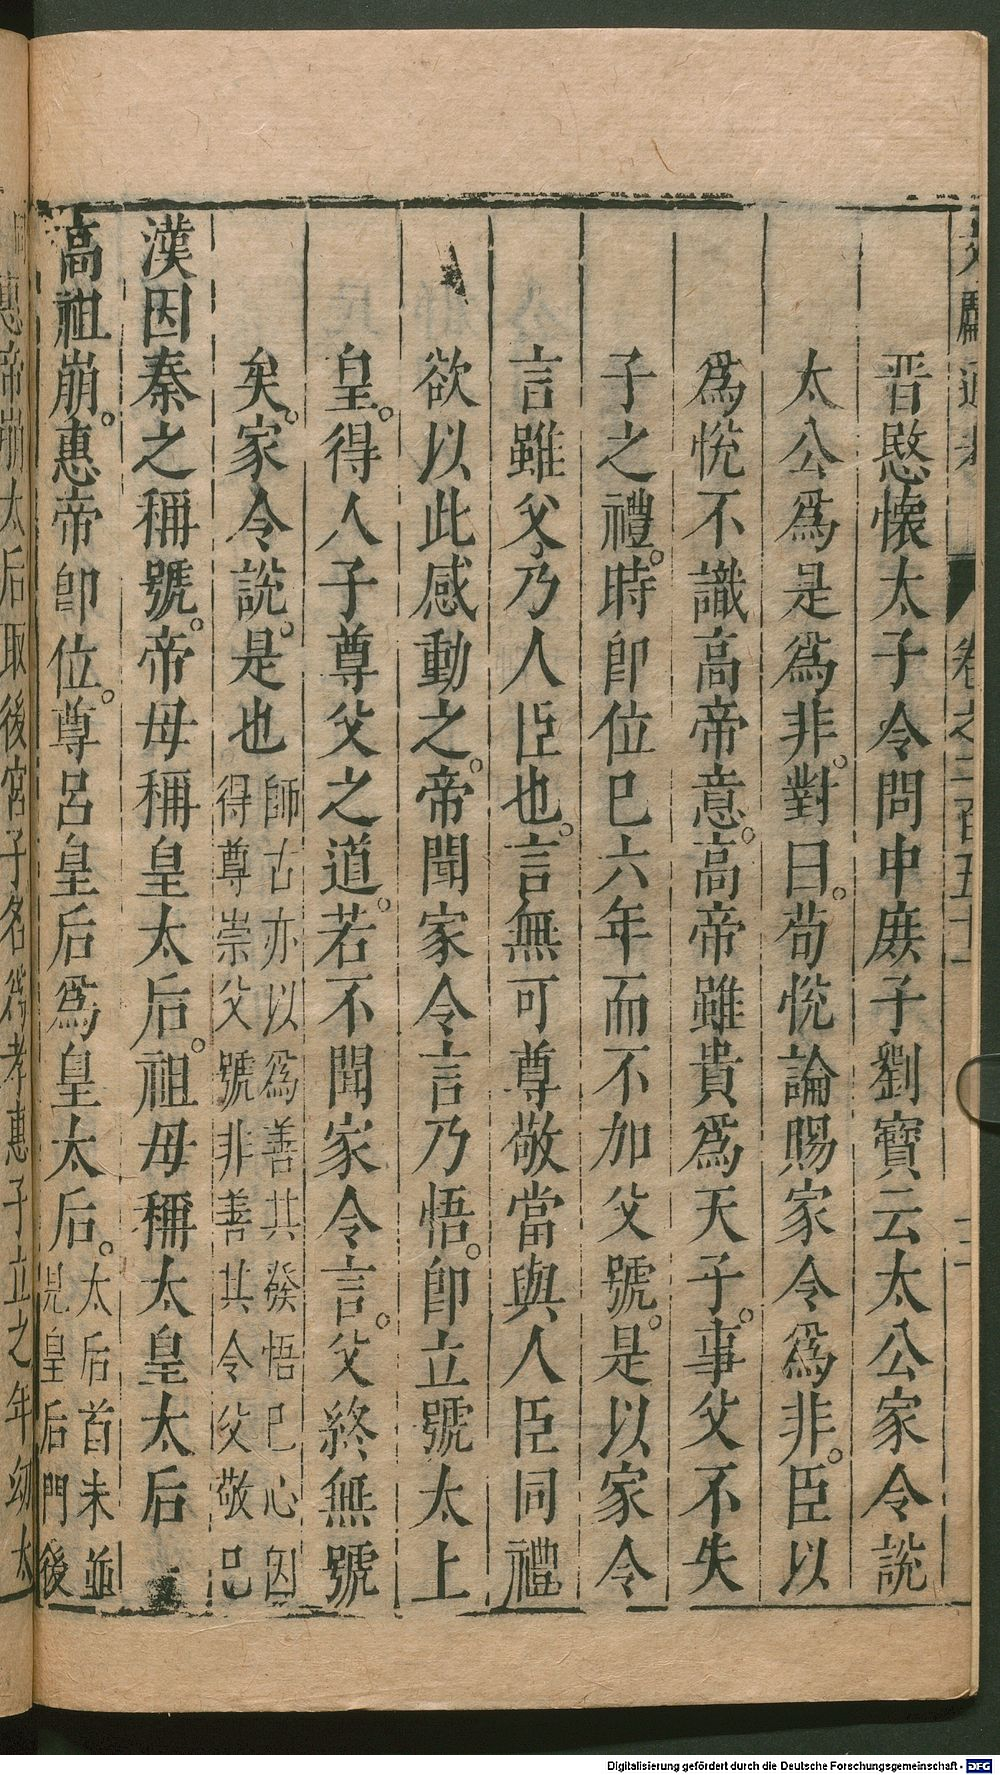 卷之二百五十一
晋愍懐太子令問中庻子劉寳云太公家令説
太公爲是爲非。對曰。荀悅論賜家令爲非。臣以
爲悅不識高帝意。高帝雖貴爲天子。事父不失
子之禮。時卽位已六年而不加父號。是以家令
言雖父。乃人臣也。言無可尊敬當與人臣同禮
欲以此感動之。帝聞家令言乃悟。卽立號太上
皇。得人子尊父之道。若不聞家令言。父終無號
矣。家令說。是也師古亦以爲善其發悟已心因
得尊崇父號非善其令父敬已
漢因秦之稱號。帝母稱皇太后。祖母稱太皇太后
高祖崩。惠帝卽位。尊呂皇后爲皇太后。太后首未並
見皇后門後
惠帝崩太后取後宮子名爲孝惠子立之年幼太
Digitalisierung gefördert durch die Deutsche Forschungsgemeinschaft - DFG